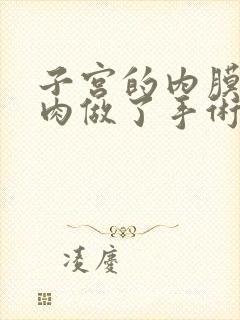 子宫的内膜
肉做了手術
凌慶